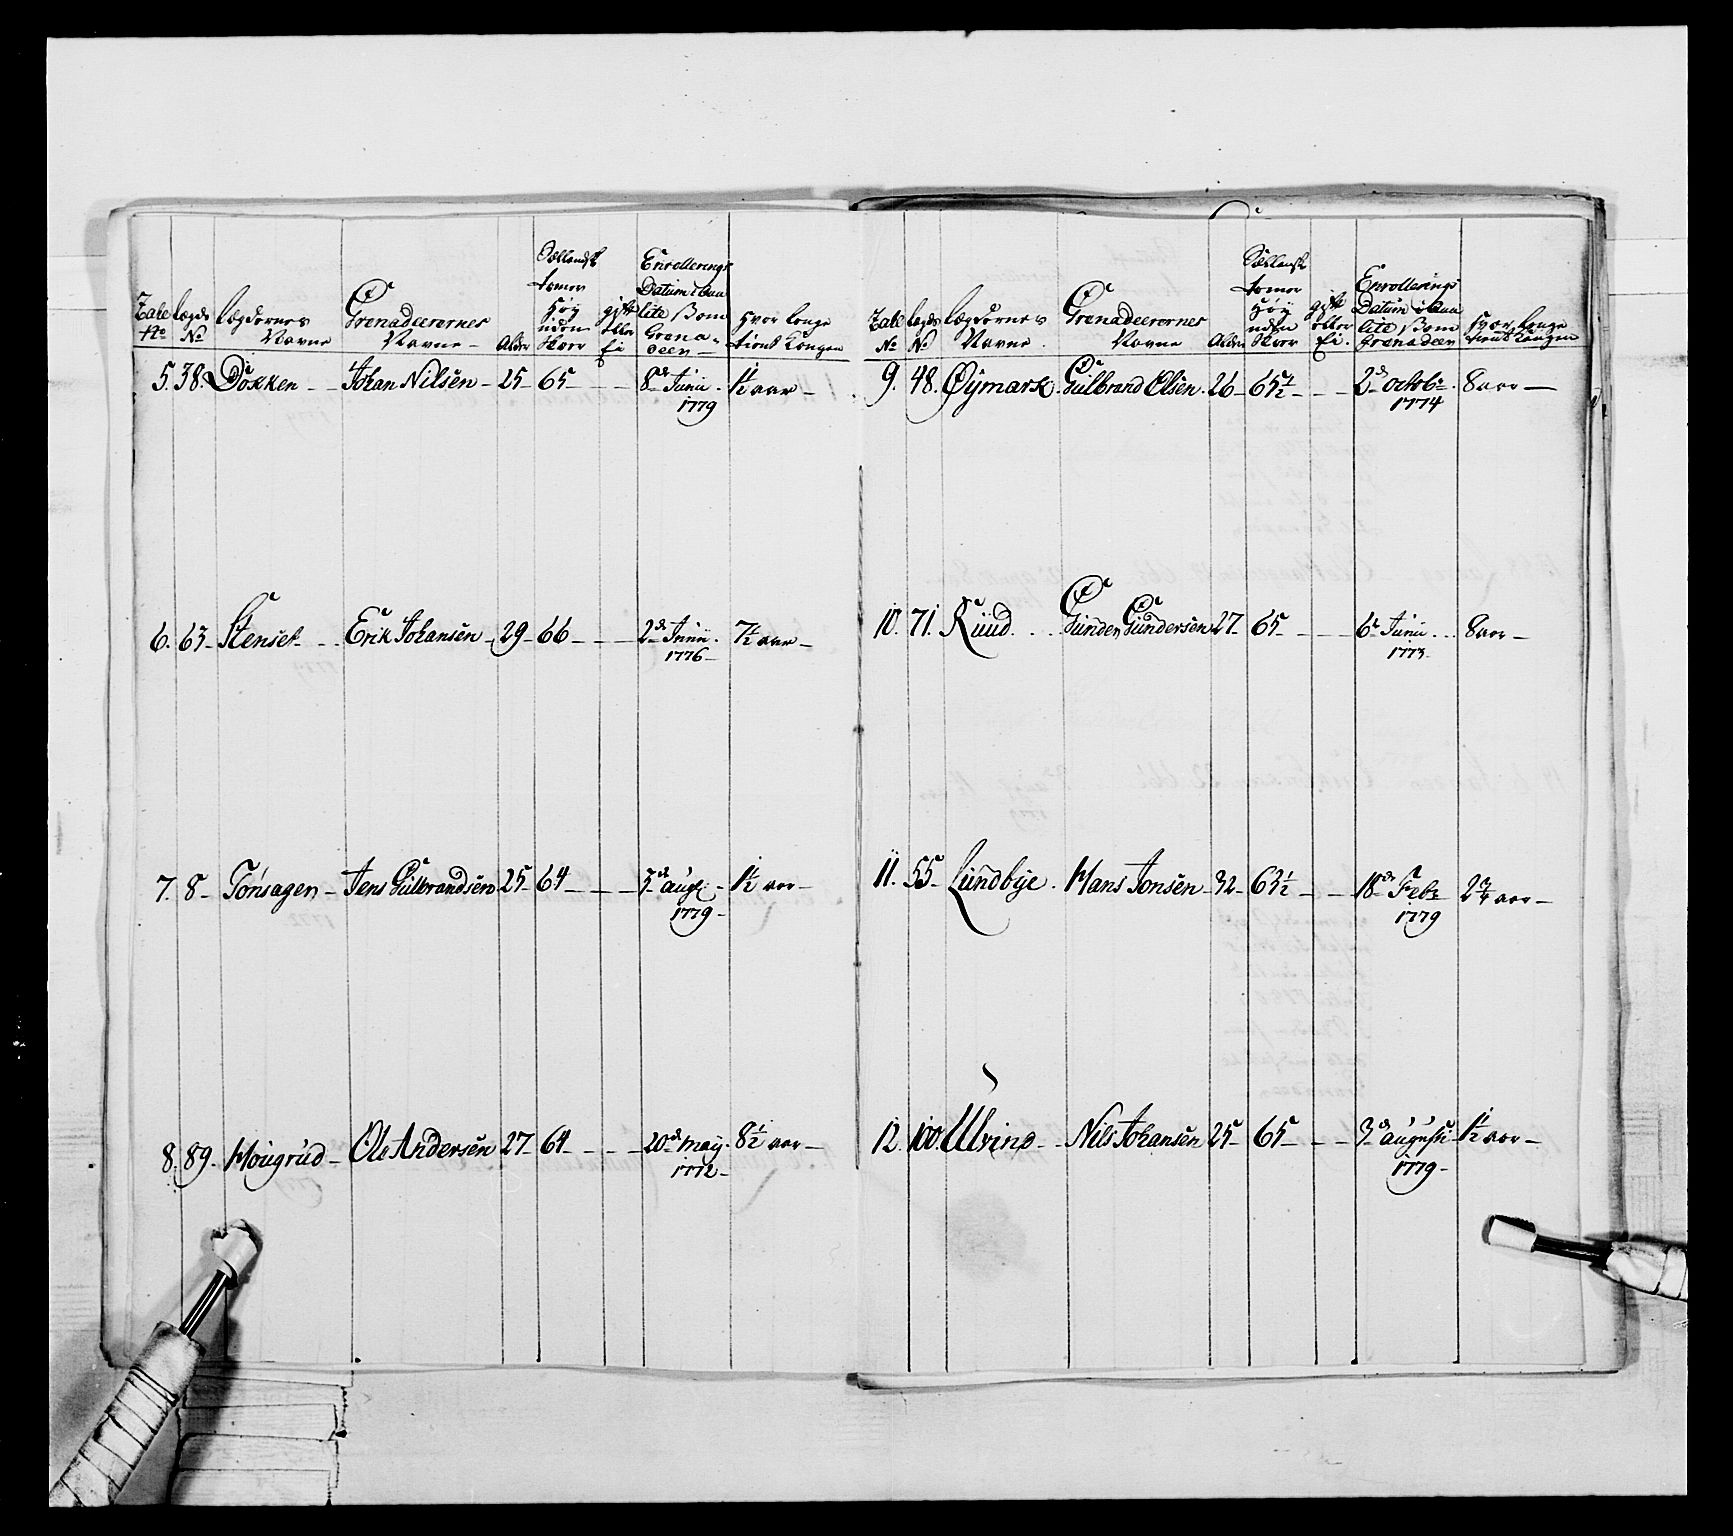 Tale No
Lægds No
Lægdernes Navne
Grenadeerernes Navne
Alder
Sællandsk tomer høy uden Skoer
gift eller Ei
Enrollerings Datum i Qualite Som Grenadeer
Hvor Længe tient Kongen
5. 38. Dokken Johan Nilsen 25 65 8de Junii 1779 1½ aar
6. 63 Stenset Erik Johansen 29 66 2de Junii 1776 7½ aar
7. 8 Tonsagen Jens Gulbrandsen 25 64 7de augt 1779 1½ aar
8. 89. Hougrud Ole Andersen 27 64 20de maij 1772 8½ aar
Tale No
Lægds No
Lægdernes Navne
Grenadeerernes Navne
Alder
Sællansk tomer høy uden Skoer
gift eller Ei
Enrollerings Datum i Qualite Som Grenadeer
Hvor Længe tient Kongen
9. 48. Øymark Gulbrand Olsen 26 65½ 2de octobr 1774 8 aar
10. 71. Ruud Gunder Gundersen 27 65 6te Junii 1773 8 aar
11. 55 Lundbye Hans Jonsen 32 63½ 18de Febr 1779 2¾ aar
12. 100. Ulrind Nils Johansen 25 65 3de augusti 1779 1½ aar